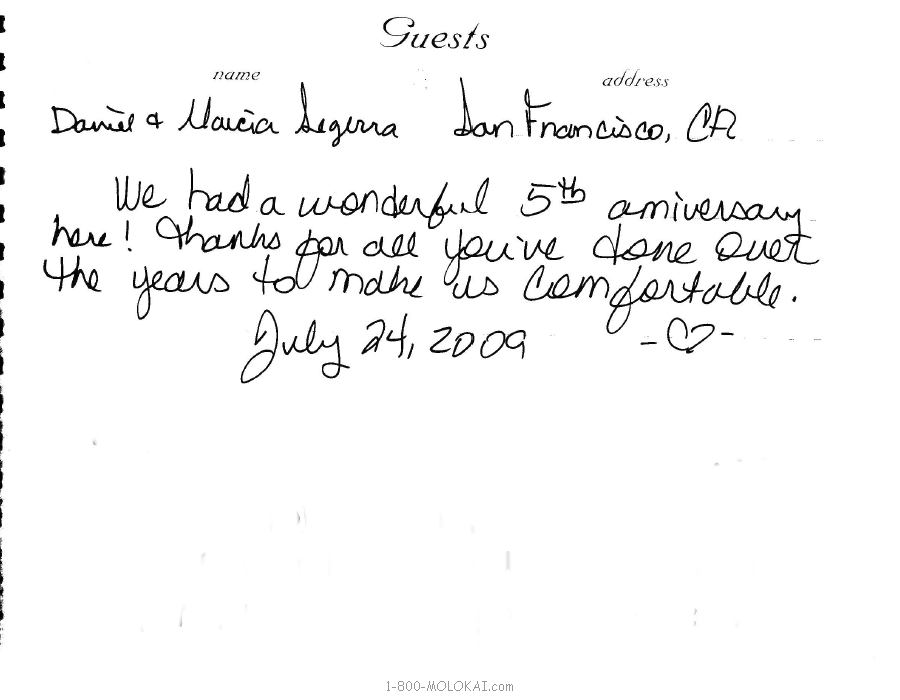 Guests
name address
Daniel & Marcia Segerra San Francisco, CA
We had a wonderful 5th aniversary
here! Thanks for all you've done over
the years to make us comfortable.
July 24, 2009 -♡-
1-800-MOLOKAI.com